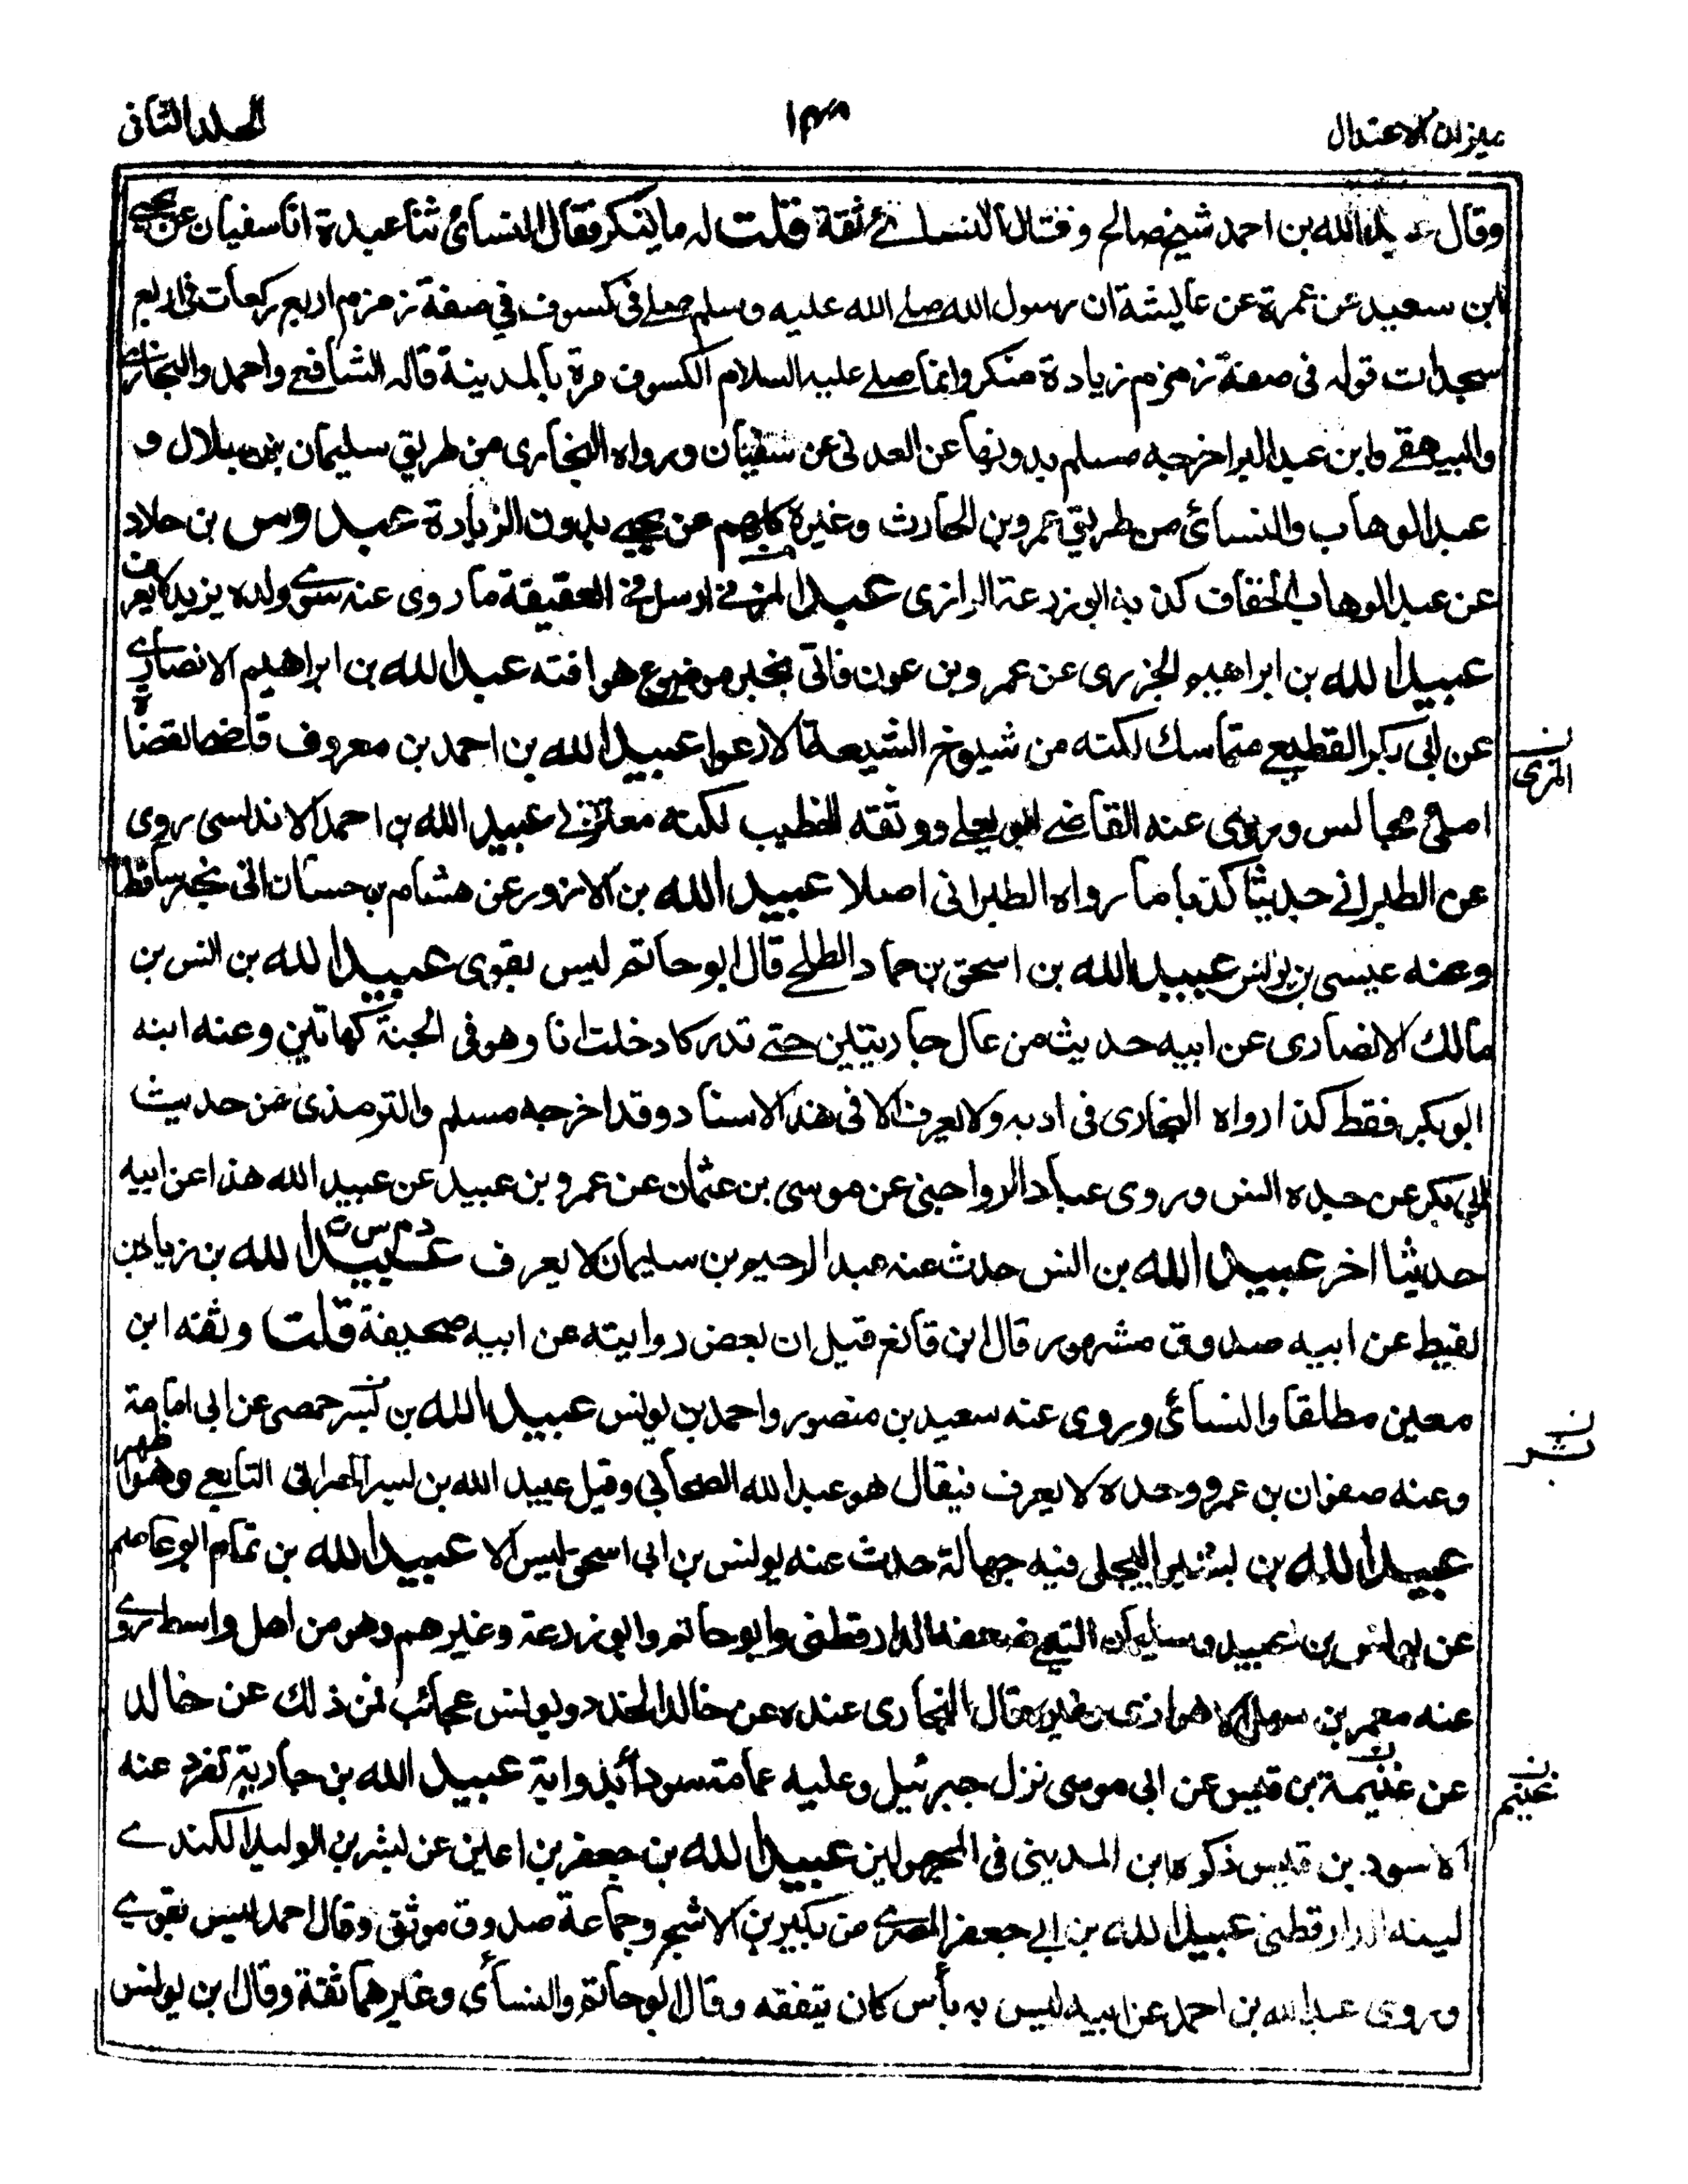 ميزان الاعتدال
الجلد الثاني
وقال عبد الله بن احمد شيخ صالح وقال النسائي ثقة قلت له ما ينكر فقال النسائي ثنا عبدة انا سفيان عن يحيى
ابن سعيد عن عمرة عن عايشة ان رسول الله صلى الله عليه وسلم صلى في كسوف في صفة زمزم اربع ركعات في اربع
سجدات قوله في صفة زمزم زيادة منكر وانما صلى عليه السلام الكسوف مرة بالمدينة قاله الشافعي واحمد والبخاري
والبيهقي وابن عبد البر اخرجه مسلم بدونها عن العدني عن سفيان ورواه البخاري من طريق سليمان بن بلال و
عبد الوهاب والنسائي من طريق عمرو بن الحارث وغيره كلهم عن يحيى بدون الزيادة عبدوس بن خلاد
عن عبد الوهاب الخفاف كذبه ابو زرعة الرازي عبد المزني ارسل في العقيقة ما روى عنه سوى ولده يزيد لا يعرف
عبيد الله بن ابراهيم الجزري عن عمرو بن عون فاتى بخبر موضوع هو افته عبيد الله بن ابراهيم الانصاري
عن ابي بكر القطيعي متماسك لكنه من شيوخ الشيعة لا رعوا عبيد الله بن احمد بن معروف قاضي القضاة
املى مجالس وروى عنه القاضي ابو يعلى ووثقه الخطيب لكنه معتزلي عبيد الله بن احمد الاندلسي روى
عن الطبراني حديثا كذبا ما رواه الطبراني اصلا عبيد الله بن الازور عن هشام بن حسان اتى بخبر ساقط
وعنه عيسى بن يونس عبيد الله بن اسحق بن حماد الطلحي قال ابو حاتم ليس بقوى عبيد الله بن انس بن
مالك الانصاري عن ابيه حديث من عال جاريتين حتى تدركا دخلت انا وهو في الجنة كهاتين وعنه ابنه
ابو بكر فقط كذا رواه البخاري في ادبه ولا يعرف الا في هذا الاسناد وقد اخرجه مسلم والترمذي عن حديث
ابي بكر عن جده انس وروى عباد الرواجني عن موسى بن عثمان عن عمرو بن عبيد عن عبيد الله هذا عن ابيه
حديثا اخر عبيد الله بن انس حدث عنه عبد الرحيم بن سليمان لا يعرف عبيد الله بن زياد بن
د م س ت
لقيط عن ابيه صدوق مشهور قال ابن قانع قيل ان بعض روايته عن ابيه صحيفة قلت وثقه ابن
معين مطلقا والنسائي وروى عنه سعيد بن منصور واحمد بن يونس عبيد الله بن بسر حمصي عن ابي امامة
وعنه صفوان بن عمرو وحده لا يعرف فيقال هو عبد الله الصحابي وقيل عبيد الله بن بسر الحبراني التابعي وهو اظهر
عبيد الله بن بشير البجلي فيه جهالة حدث عنه يونس بن ابي اسحق ليس الا عبيد الله بن تمام ابو عاصم
عن يونس بن عبيد وسليمان التيمي ضعفه الدارقطني وابو حاتم وابو زرعة وغيرهم وهو من اهل واسط روى
عنه معمر بن سهل الاهوازي وغيره قال البخاري عنده عن خالد الحذاء ويونس عجائب فمن ذلك عن خالد
عن غنيمة بن قيس عن ابي موسى نزل جبرئيل وعليه عمامة سوداء بذوابة عبيد الله بن جارية تفرد عنه
الاسود بن قيس ذكره ابن المديني في المجهولين عبيد الله بن جعفر بن اعين عن بشر بن الوليد الكندي
لينه الدارقطني عبيد الله بن ابي جعفر المصري من بكير بن الاشج وجماعة صدوق موثق وقال احمد ليس بقوي
وروى عبد الله بن احمد عن ابيه ليس به بأس كان يتفقه وقال ابو حاتم والنسائي وغيرهما ثقة وقال ابن يونس
ن
المزى
ن
بشر
ن
غنيم